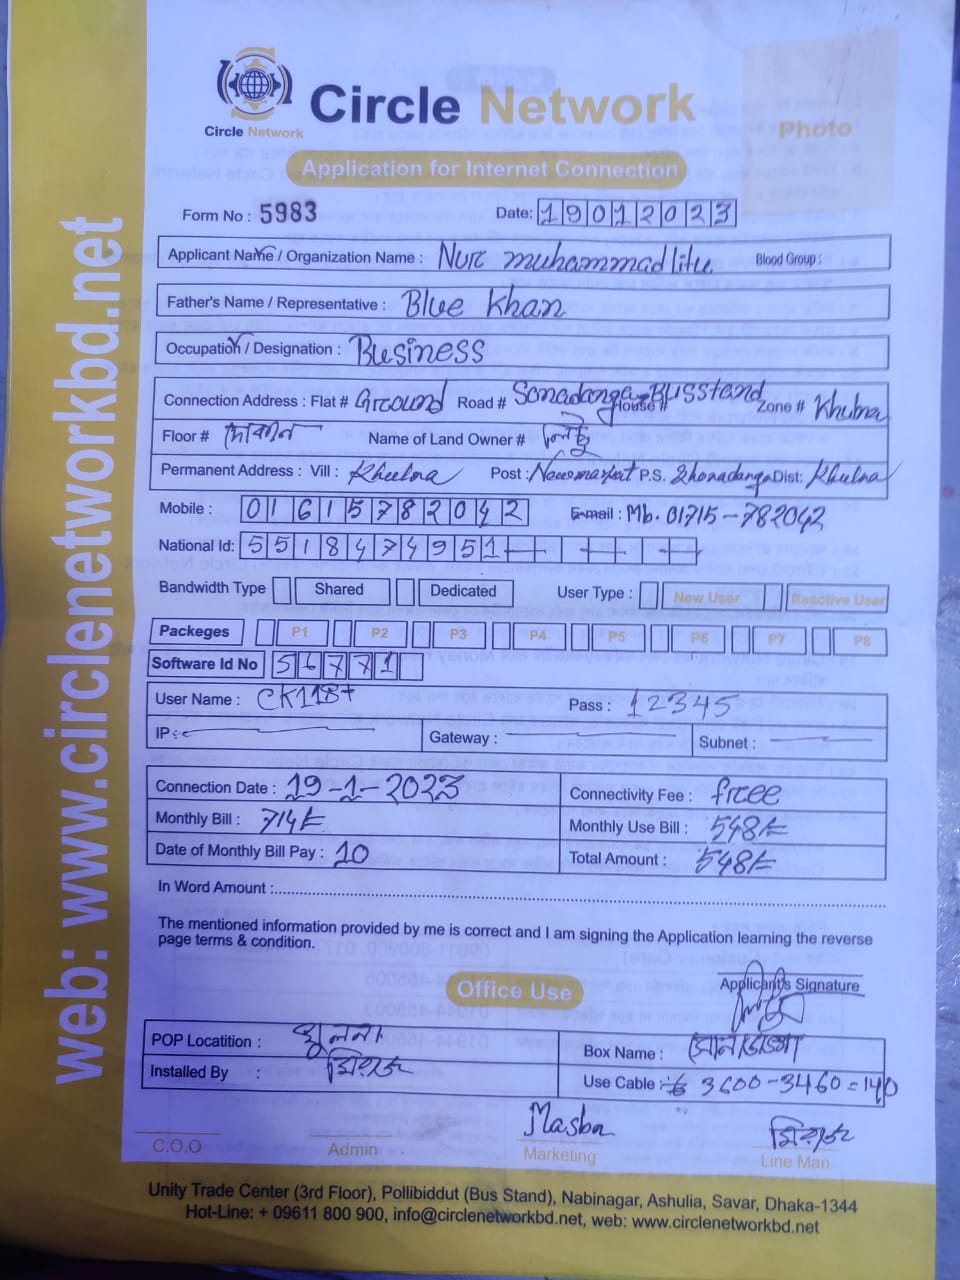 Circle Network
Circle Network
Photo
Application for Internet Connection
Form No : 5983 Date: 19012023
Applicant Name / Organization Name : Nur muhammad litu Blood Group :
Father's Name / Representative : Blue Khan
Occupation / Designation : Business
Connection Address : Flat # Ground Road # Sonadanga Busstand House # Zone # Khulna
Floor # দোকান Name of Land Owner # লিটু
Permanent Address : Vill : Khulna Post : Newmarket P.S. Shonadanga Dist: Khulna
Mobile : 01615782042 E-mail : Mb. 01715-782042
National Id: 5518474951
Bandwidth Type Shared Dedicated User Type : New User Reactive User
Packeges P1 P2 P3 P4 P5 P6 P7 P8
Software Id No 56771
User Name : Pass : 12345
IP : Gateway : Subnet :
Connection Date : 19-1-2023 Connectivity Fee : free
Monthly Bill : 714/= Monthly Use Bill : 548/=
Date of Monthly Bill Pay : 10 Total Amount : 548/=
In Word Amount :
The mentioned information provided by me is correct and I am signing the Application learning the reverse
page terms & condition.
Applicant's Signature
Office Use
POP Locatition : খুলনা Box Name :
Installed By : মিরাজ Use Cable : 3600-3460=140
Masba মিরাজ
C.O.O Admin Marketing Line Man
Unity Trade Center (3rd Floor), Pollibiddut (Bus Stand), Nabinagar, Ashulia, Savar, Dhaka-1344
Hot-Line: + 09611 800 900, info@circlenetworkbd.net, web: www.circlenetworkbd.net
web: www.circlenetworkbd.net